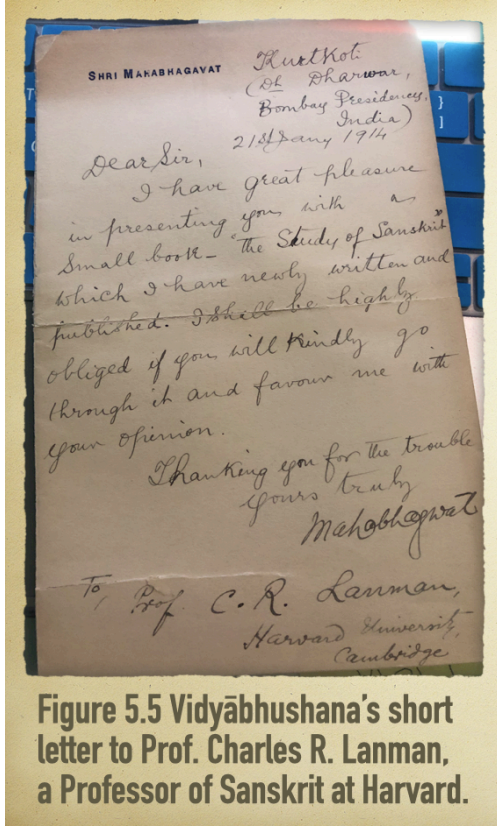 SHRI MAHABHAGAVAT
Kurtkoti
(Dh Dharwar,
Bombay Presidency,
India)
21st Jany 1914
Dear Sir,
I have great pleasure
in presenting you with a
small book – "the Study of Sanskrit"
which I have newly written and
published. I shall be highly
obliged if you will kindly go
through it and favour me with
your opinion.
Thanking you for the trouble
yours truly
Mahabhagwat
To,
Prof. C. R. Lanman,
Harvard University,
Cambridge
Figure 5.5 Vidyābhushana's short
letter to Prof. Charles R. Lanman,
a Professor of Sanskrit at Harvard.